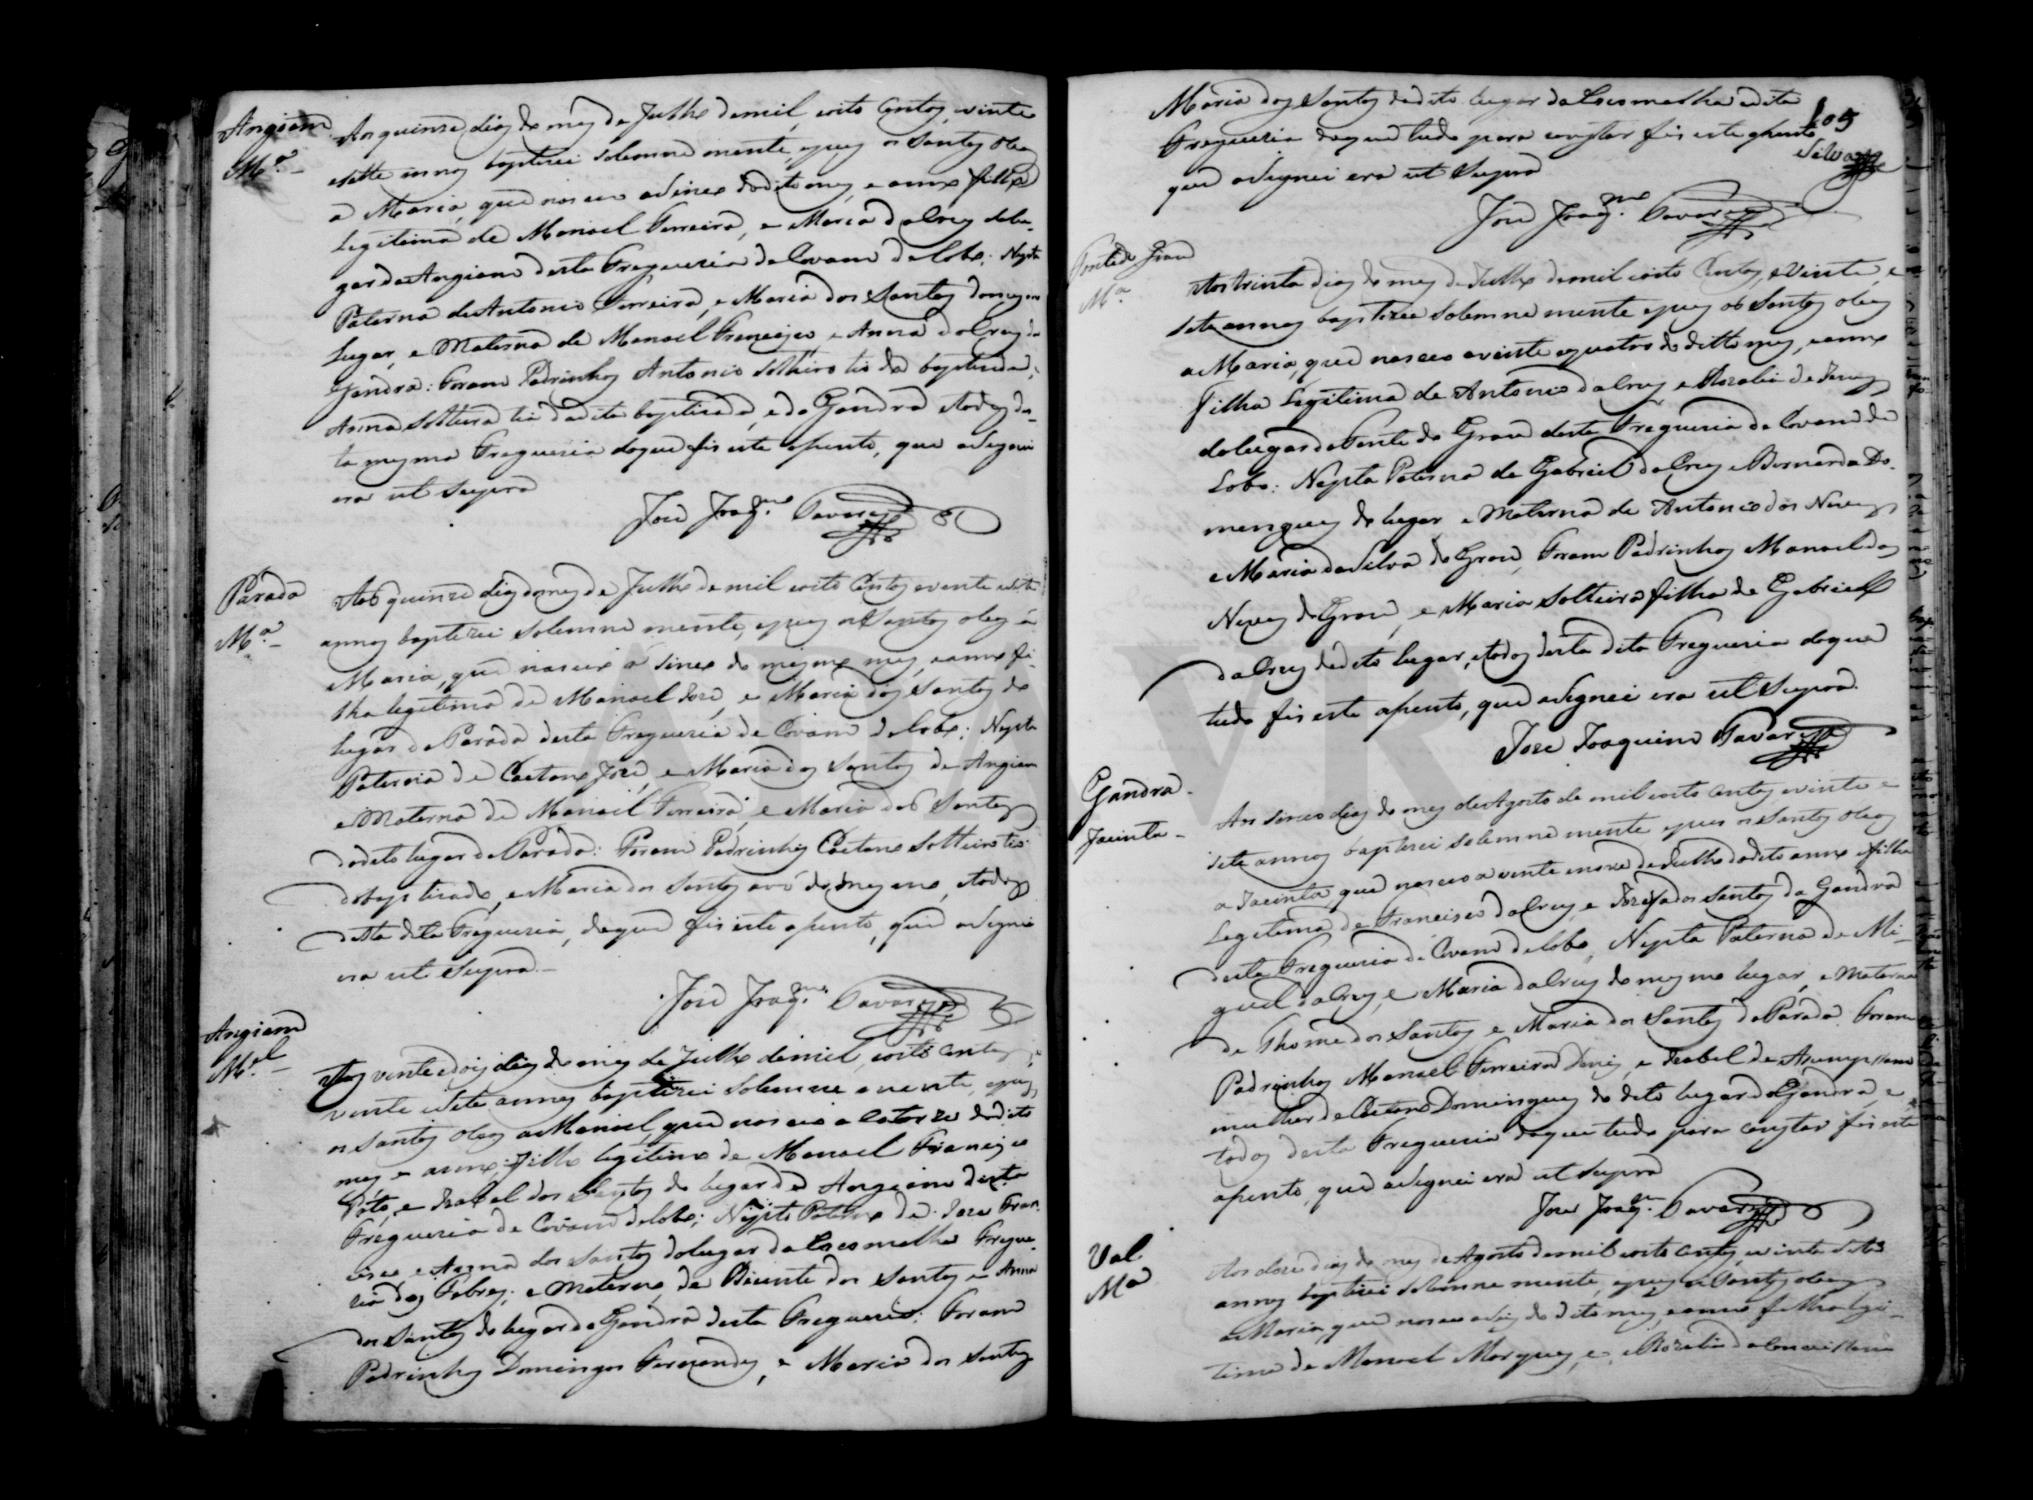 Angiam
M.ª
Aos quinze dias do mes de Julho de mil oito centos, vinte
e sette annos baptizei solemne mente, e puz os Santos Oleos
a Maria, que nasceo a sinco do dito mes, e anno filha
Legitima de Manoel Ferreira, e Maria da Cruz do lu-
gar de Angiam desta Freguezia de Covam do lobo; Nepta
Paterna de Antonio Ferreira, e Maria dos Santos do mesmo
Lugar, e Materna de Manoel Francisco, e Anna da Cruz da
Gandra: Foram Padrinhos Antonio solteiro tio da baptizada,
Anna solteira tia da dita baptizada, e da Gandra e todos des-
ta mesma Freguezia do que fis este assento, que asignei
era ut supra
José Joaq.m Tavares
Parada
M.ª
Aos quinze dias do mes de Julho de mil oito Centos e vinte e sete
annos baptizei solemne mente, e puz os Santos oleos á
Maria, que nasceo a sinco do mesmo mes, e anno fi-
lha legitima de Manoel José, e Maria dos Santos do
lugar da Parada desta Freguezia de Covam do lobo; Nepta
Paterna de Caetano José, e Maria dos Santos de Angiam
e Materna de Manoel Ferreira, e Maria dos Santos
do dito lugar da Parada: Foram Padrinhos Caetano Solteiro tio
do baptizado, e Maria dos Santos avó do mesmo, e todos
desta dita Freguezia, do que fis este assento, que asignei
era ut supra.
José Joaq.m Tavares
Angiam
M.el
Aos vinte e dois dias do mes de Julho de mil, oito centos, e
vinte e sete annos baptizei solemne mente, e puz
os Santos Oleos a Manoel, que nasceo a catorze do dito
mes e anno; filho legitimo de Manoel Francisco
Pató, e Izabel dos Santos do lugar de Angiam desta
Freguezia de Covam do lobo; Nepto Paterno de José Fran-
cisco e Anna dos Santos do lugar da Lacomelha Fregue-
zia das Febres; e Materno de Vicente dos Santos e Anna
dos Santos do lugar da Gandra desta Freguezia: Foram
Padrinhos Domingos Fernandes, e Maria dos Santos
Maria dos Santos do dito lugar da Lacomelha e dita
Freguezia do que tudo para constar fis este assento
que asignei era ut supra
105
Silva
José Joaq.m Tavares
Ponte do Grou
M.ª
Aos trinta dias do mes de Julho de mil oito Centos, e Vinte, e
sete annos baptizei solemne mente e puz os Santos oleos
a Maria, que nasceo a vinte e quatro do ditto mes, e anno
Filha Legitima de Antonio da Cruz e Rozalia de Jesus
do lugar da Ponte do Grou desta Freguezia de Covam do
Lobo: Nepta Paterna de Gabriel da Cruz e Bernarda Do-
mingues do lugar e Materna de Antonio dos Neves
e Maria da Silva do Grou, Foram Padrinhos Manoel das
Neves do Grou, e Maria Solteira filha de Gabriel
da Cruz do dito lugar, e todos desta dita Freguezia do que
tudo fis este assento, que asignei era ut supra.
José Joaquim Tavares
Gandra
Jacinta
Aos sinco dias do mes de Agosto de mil oito centos e vinte e
sete annos baptizei solemne mente e puz os Santos Oleos
a Jacinta, que nasceo a vinte e nove de Julho do dito anno filha
Legitima de Francisco da Cruz, e Jozefa dos Santos da Gandra
desta Freguezia de Covam do lobo, Nepta Paterna de Mi-
guel da Cruz, e Maria da Cruz do mesmo lugar, e Materna
de Thome dos Santos e Maria dos Santos da Parada. Foram
Padrinhos Manoel Ferreira Diniz, e Izabel de Assumpssam
mulher de Caetano Domingues do dito lugar da Gandra, e
todos desta Freguezia do que tudo para constar fis este
assento, que asignei era ut supra
José Joaq.m Tavares
Val.
Mª
Aos doze dias do mes de Agosto de mil oito centos, e vinte e sete
annos baptizei solemne mente, e puz os Santos oleos
a Maria, que nasceo a dez do dito mes, e anno filha legi-
tima de Manoel Marques, e Rozalia da Conceissam